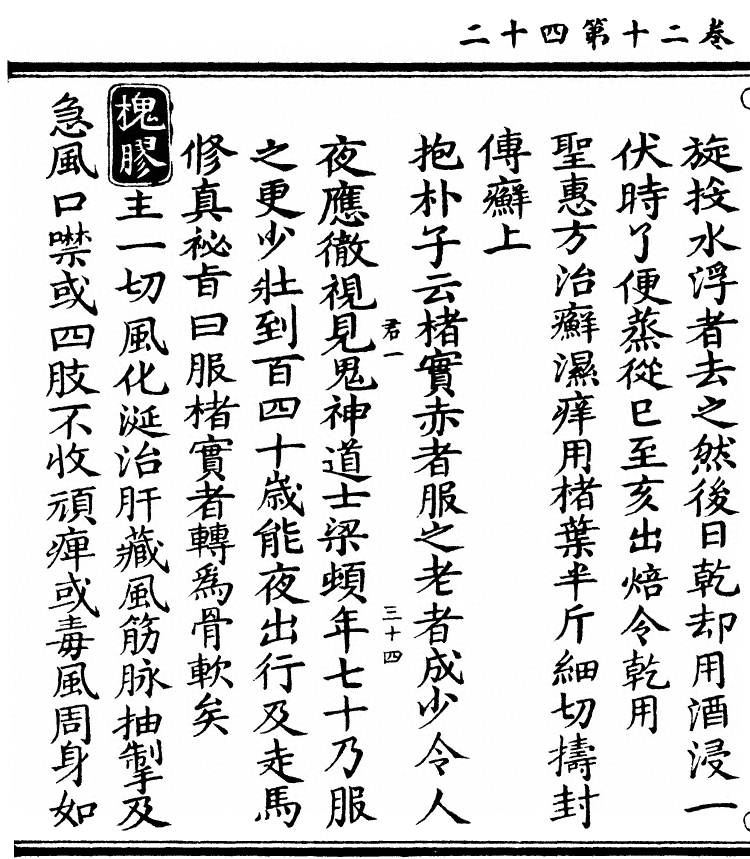 卷二十第四十二
旋投水浮者去之然後日乾却用酒浸一
伏時了便蒸從巳至亥出焙令乾用
聖惠方治癬濕痒用楮葉半斤細切擣封
傅癬上
抱朴子云楮實赤者服之老者成少令人
君一
三十四
夜應徹視見鬼神道士梁頓年七十乃服
之更少壯到百四十歲能夜出行及走馬
修真祕旨曰服楮實者轉爲骨軟矣
槐膠主一切風化涎治肝藏風筋脉抽掣及
急風口噤或四肢不收頑痺或毒風周身如